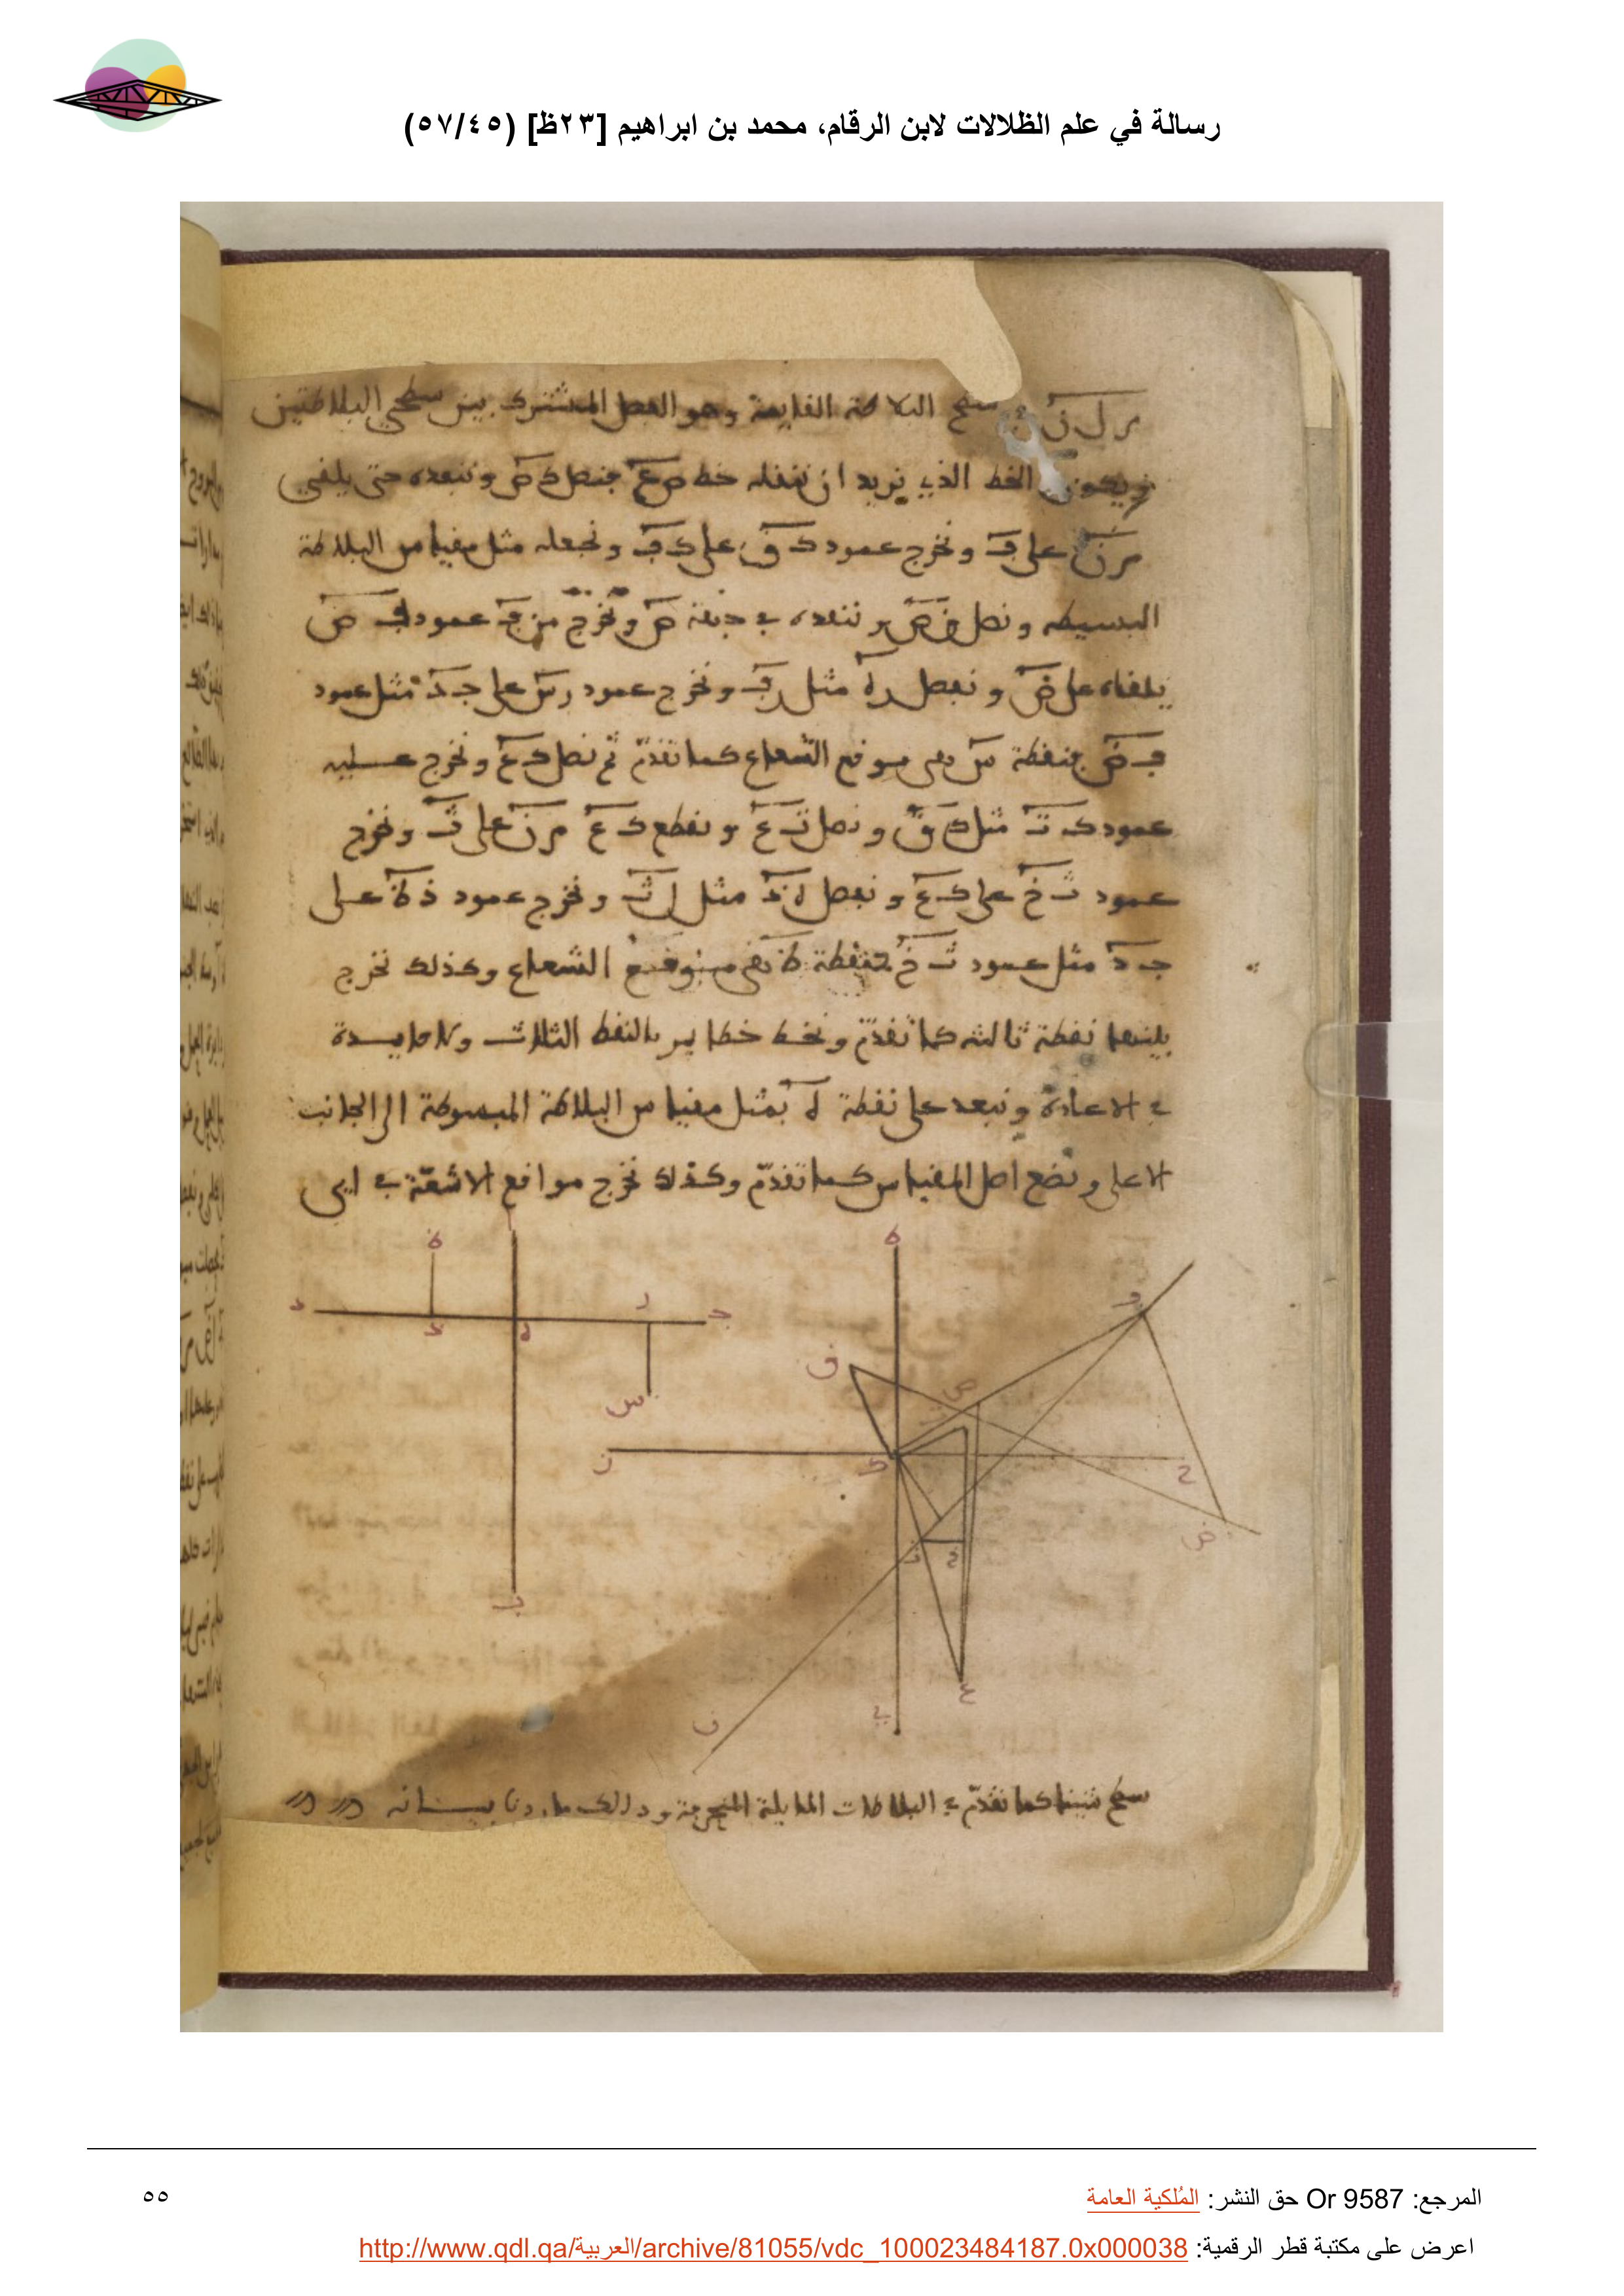 رسالة في علم الظلالات لابن الرقام، محمد بن ابراهيم [٢٣ظ] (٥٧/٤٥)
سطح البلاطة القايمة وهو الفصل المشترك بين سطحي البلاطتين
ويكون الخط الذي نريد ان ننقله خط ص ع فنصل ك ص وننفده حتى يلقى
م ن على ف ونخرج عمود ك ق على ك ف ونجعله مثل مقياس البلاطة
البسيطة ونصل ق ص وننفده في جهة ص ونخرج من ف عمود ف ض
يلقاه على ض ونفصل ر ه مثل ف ونخرج عمود ر س على ج د مثل عمود
ف ض فنقطة س هي موقع الشعاع كما تقدّم ثم نصل ك ع ونخرج عليه
عمود ك ت مثل ك ق ونصل ت ع ونقطع ك ع م ن على ث ونخرج
عمود ث خ على ك ع ونفصل ه ذ مثل ل ث ونخرج عمود ذ ظ على
ج د مثل عمود ث خ فنقطة ظ هي موقع الشعاع وكذلك نخرج
بينهما نقطة ثالثة كما تقدّم ونخط خطا يمر بالنقط الثلاث ولا فايدة
في الاعادة ونبعد على نقطة ه بمثل مقياس البلاطة المبسوطة الى الجانب
الاعلى ونضع اصل المقياس كما تقدّم وكذلك نخرج مواقع الاشعّة في اي
ا
ظ
ه
د
ذ
ه
ر
ج
س
ف
ق
ص
ن
ك
ح
ض
ث
خ
ب
ع
ي
سطح شينا كما تقدّم في البلاطات المايلة المنحرفة وذلك ما اردنا بيانه
المرجع: Or 9587 حق النشر: المُلكية العامة
٥٥
اعرض على مكتبة قطر الرقمية: http://www.qdl.qa/العربية/archive/81055/vdc_100023484187.0x000038